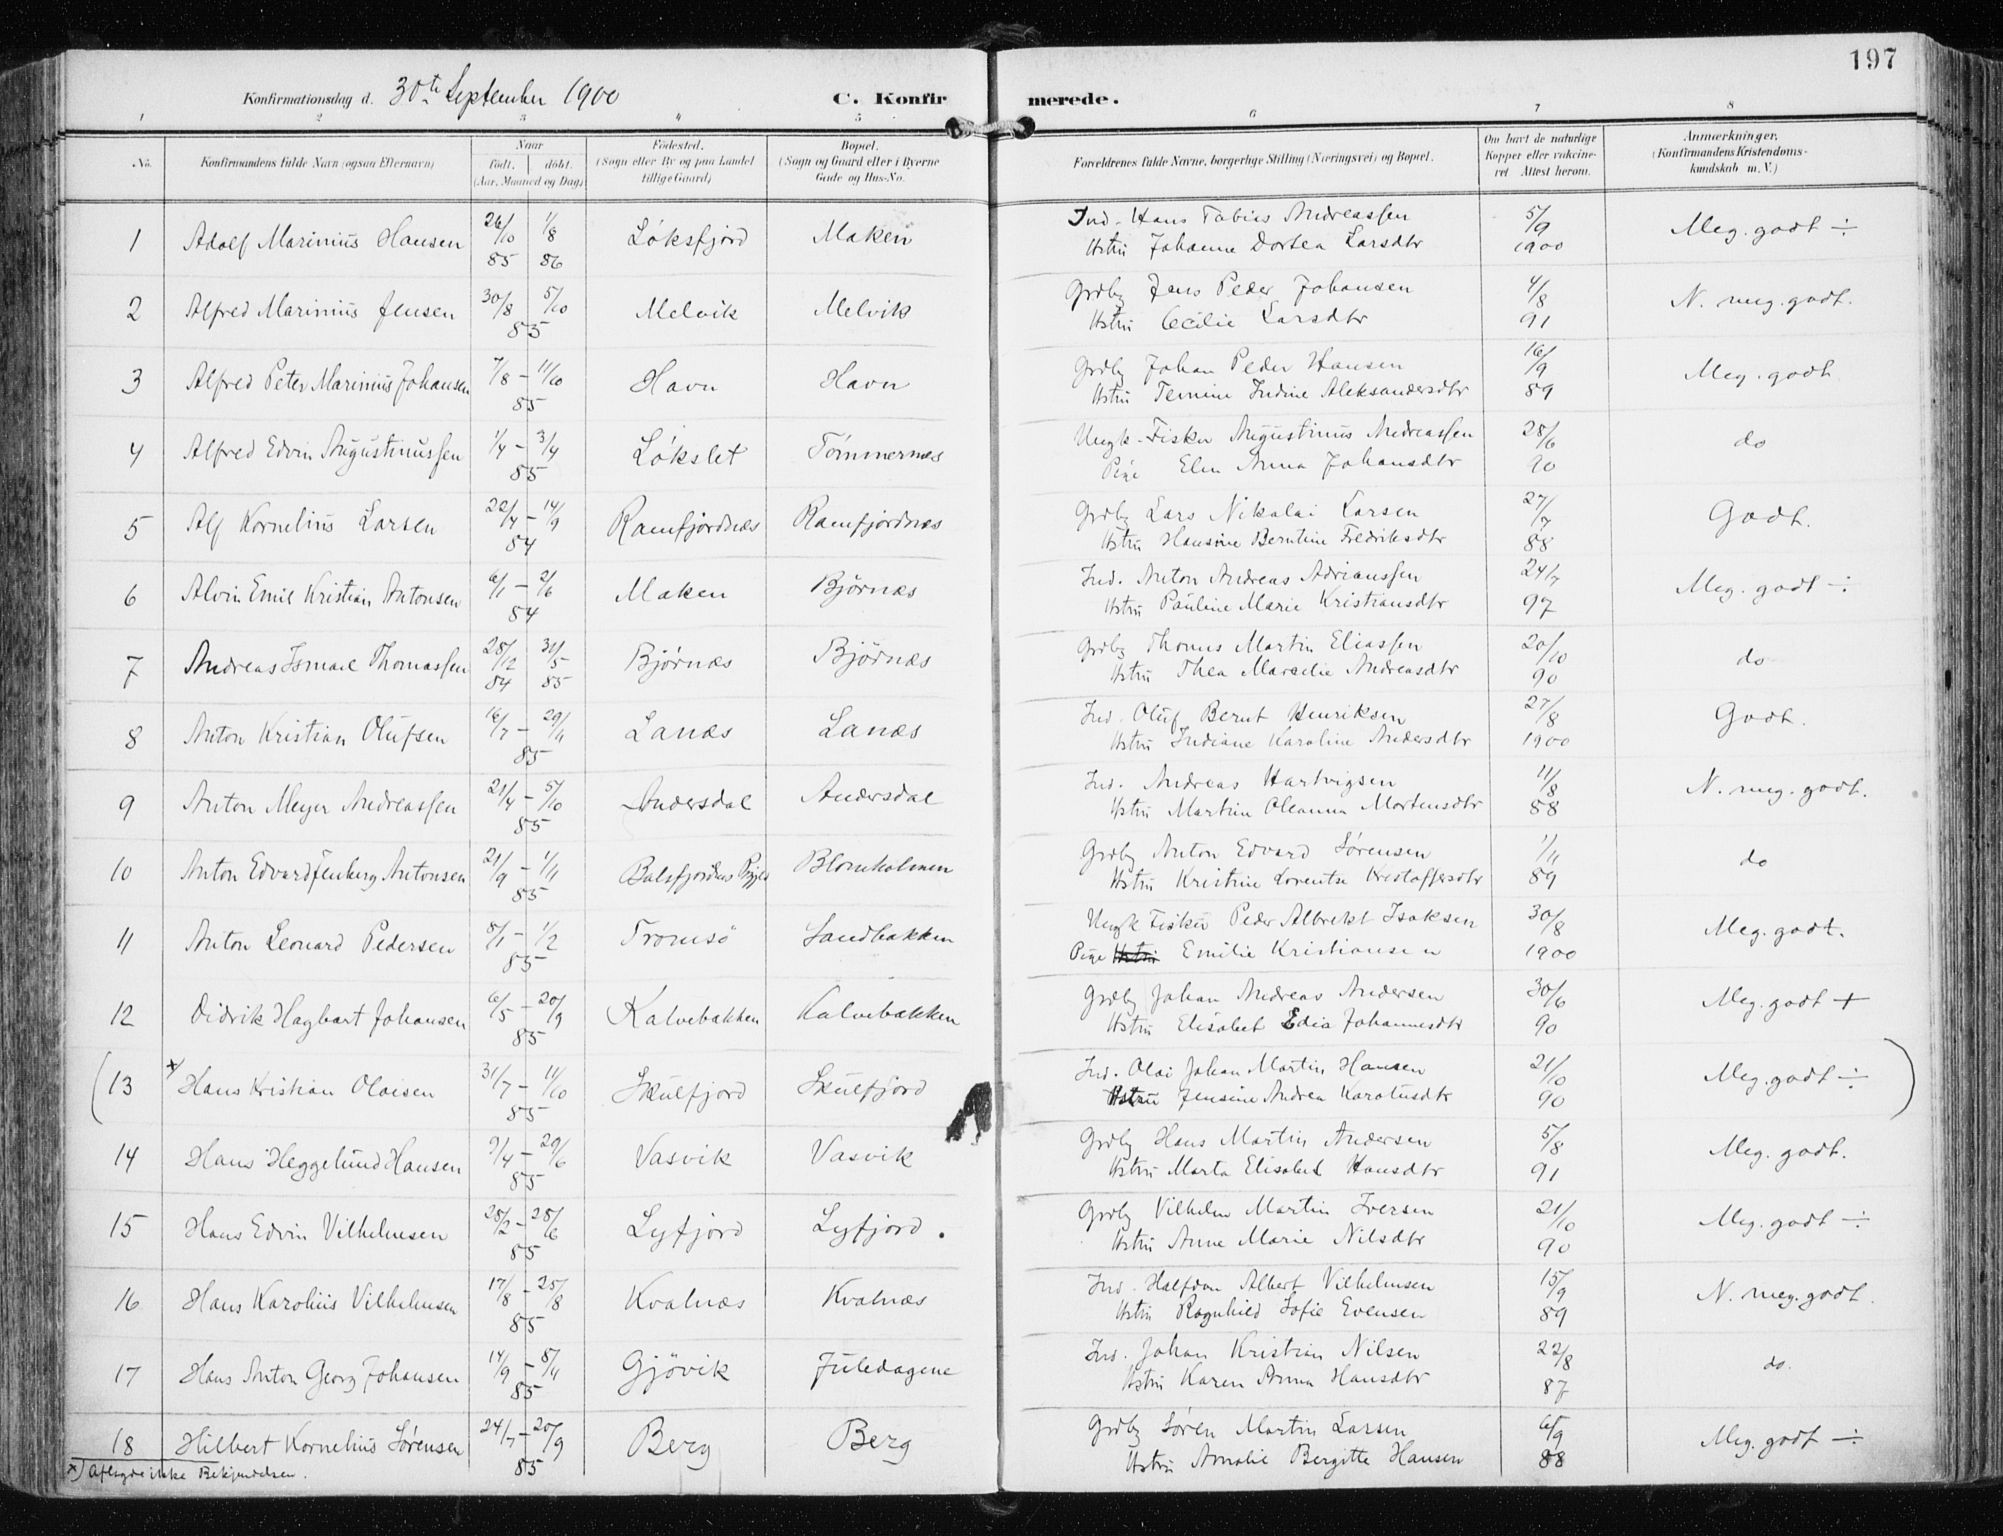 197
Konfirmationsdag d. 30te September 1900 C. Konfirmerede.
1 2 3 4 5 6 7 8
No. Konfirmandens fulde Navn (ogsaa Efternavn) Naar født, døbt. (Aar, Maaned og Dag) Fødested. (Sogn eller By og paa Landet tillige Gaard) Bopæl. (Sogn og Gaard eller i Byerne Gade og Hus-No. Forældrenes fulde Navne, borgerlige Stilling (Næringsvei) og Bopæl. Om havt de naturlige Kopper eller vakcineret Attest herom. Anmærkninger. (Konfirmandens Kristendomskundskab m. V.)
1 Adolf Marinius Hansen 26/10 85 1/8 86 Løksfjord Maken Ind. Hans Tobias Andreassen 5/9 1900 Meg. godt ÷
Hstru Johanne Dortea Larsdtr
2 Alfred Marinius Jensen 30/8 5/10 85 Melvik Melvik Grdbg Jens Peder Johansen 4/8 91 N. meg. godt.
Hstru Cecilie Larsdtr
3 Alfred Peter Marinius Johansen 7/8 – 11/10 85 Havn Havn Grdbg Johan Peder Hansen 16/9 89 Meg. godt
Hstru Indine Aleksandersdtr
4 Alfred Edvin Augustinussen 1/4 – 3/4 85 Løkslet Tømmernes Ungk. Fisker Augustinus Andreassen 28/6 90 do
Pige Elen Anna Johansdtr
5 Alf Kornelius Larsen 22/4 – 14/9 84 Ramfjordnæs Ramfjordnæs Grdbg Lars Nikolai Larsen 27/7 88 Godt.
Hstru Hansine Berntine Fredriksdtr
6 Alvin Emil Kristian Antonsen 6/1 – 2/6 84 Maken Bjørnæs Ind. Anton Andreas Adrianssen 24/7 97 Meg. godt ÷
Hstru Pauline Marie Kristiansdtr
7 Andreas Ismael Thomassen 28/12 84 31/5 85 Bjørnæs Bjørnæs Grdbg Thomas Martin Eliassen 20/10 90 do
Hstru Thea Marcelie Andreasdtr
8 Anton Kristian Olufsen 16/7 – 29/11 85 Lanæs Lanæs Ind. Oluf Bernt Henriksen 27/8 1900 Godt.
Hstru Indiane Karoline Andersdtr
9 Anton Meyer Andreassen 21/4 – 5/10 85 Andersdal Andersdal Ind. Andreas Hartvigsen 11/8 88 N. meg. godt.
Hstru Martine Oleanna Mortensdtr
10 Anton Edvard Jenberg Antonsen 21/9 – 1/11 85 Balsfjordens Prgjld Blomkolmen Grdbg Anton Edvard Sørensen 1/11 89 do
Hstru Kristine Lorentse Kristoffersdtr
11 Anton Leonard Pedersen 8/1 – 1/2 85 Tromsø Sandbakken Ungk Fisker Peder Albrekt Isaksen 30/8 1900 Meg. godt.
Pige Hstru Emilie Kristiansen
12 Didrik Hagbart Johansen 6/5 – 20/9 85 Kalvebakken Kalvebakken Grdbg Johan Andreas Andersen 30/6 90 Meg. godt +
Hstru Elisabet Edia Johannesdtr
(13 x Hans Kristian Olaisen 31/7 – 11/10 85 Skulfjord Skulfjord Ind. Olai Johan Martin Hansen 21/10 90 Meg. godt ÷)
Hstru Jensine Andrea Karolusdtr
14 Hans Heggelund Hansen 9/4 – 29/6 85 Vasvik Vasvik Grdbg Hans Martin Andersen 5/8 91 Meg. godt.
Hstru Marta Elisabet Hansdtr
15 Hans Edvin Vilhelmsen 28/2 – 28/6 85 Lyfjord Lyfjord. Grdbg Vilhelm Martin Iversen 21/10 90 Meg. godt ÷
Hstru Anne Marie Nilsdtr
16 Hans Karolius Vilhelmsen 17/8 – 25/8 85 Kvalnæs Kvalnæs Ind. Halfdan Albert Vilhelmsen 15/9 89 N. meg. godt.
Hstru Ragnhild Sofie Evensen
17 Hans Anton Georg Johansen 14/9 – 8/11 85 Gjövik Juledagene Ind. Johan Kristian Nilsen 22/8 87 do.
Hstru Karen Anna Hansdtr
18 Hilbert Kornelius Sørensen 24/7 – 20/9 85 Berg Berg Grdbg Søren Martin Larsen 6/9 88 Meg. godt ÷
Hstru Amalie Bergitte Hansen
x) Aflagde ikke Bekjendelsen.